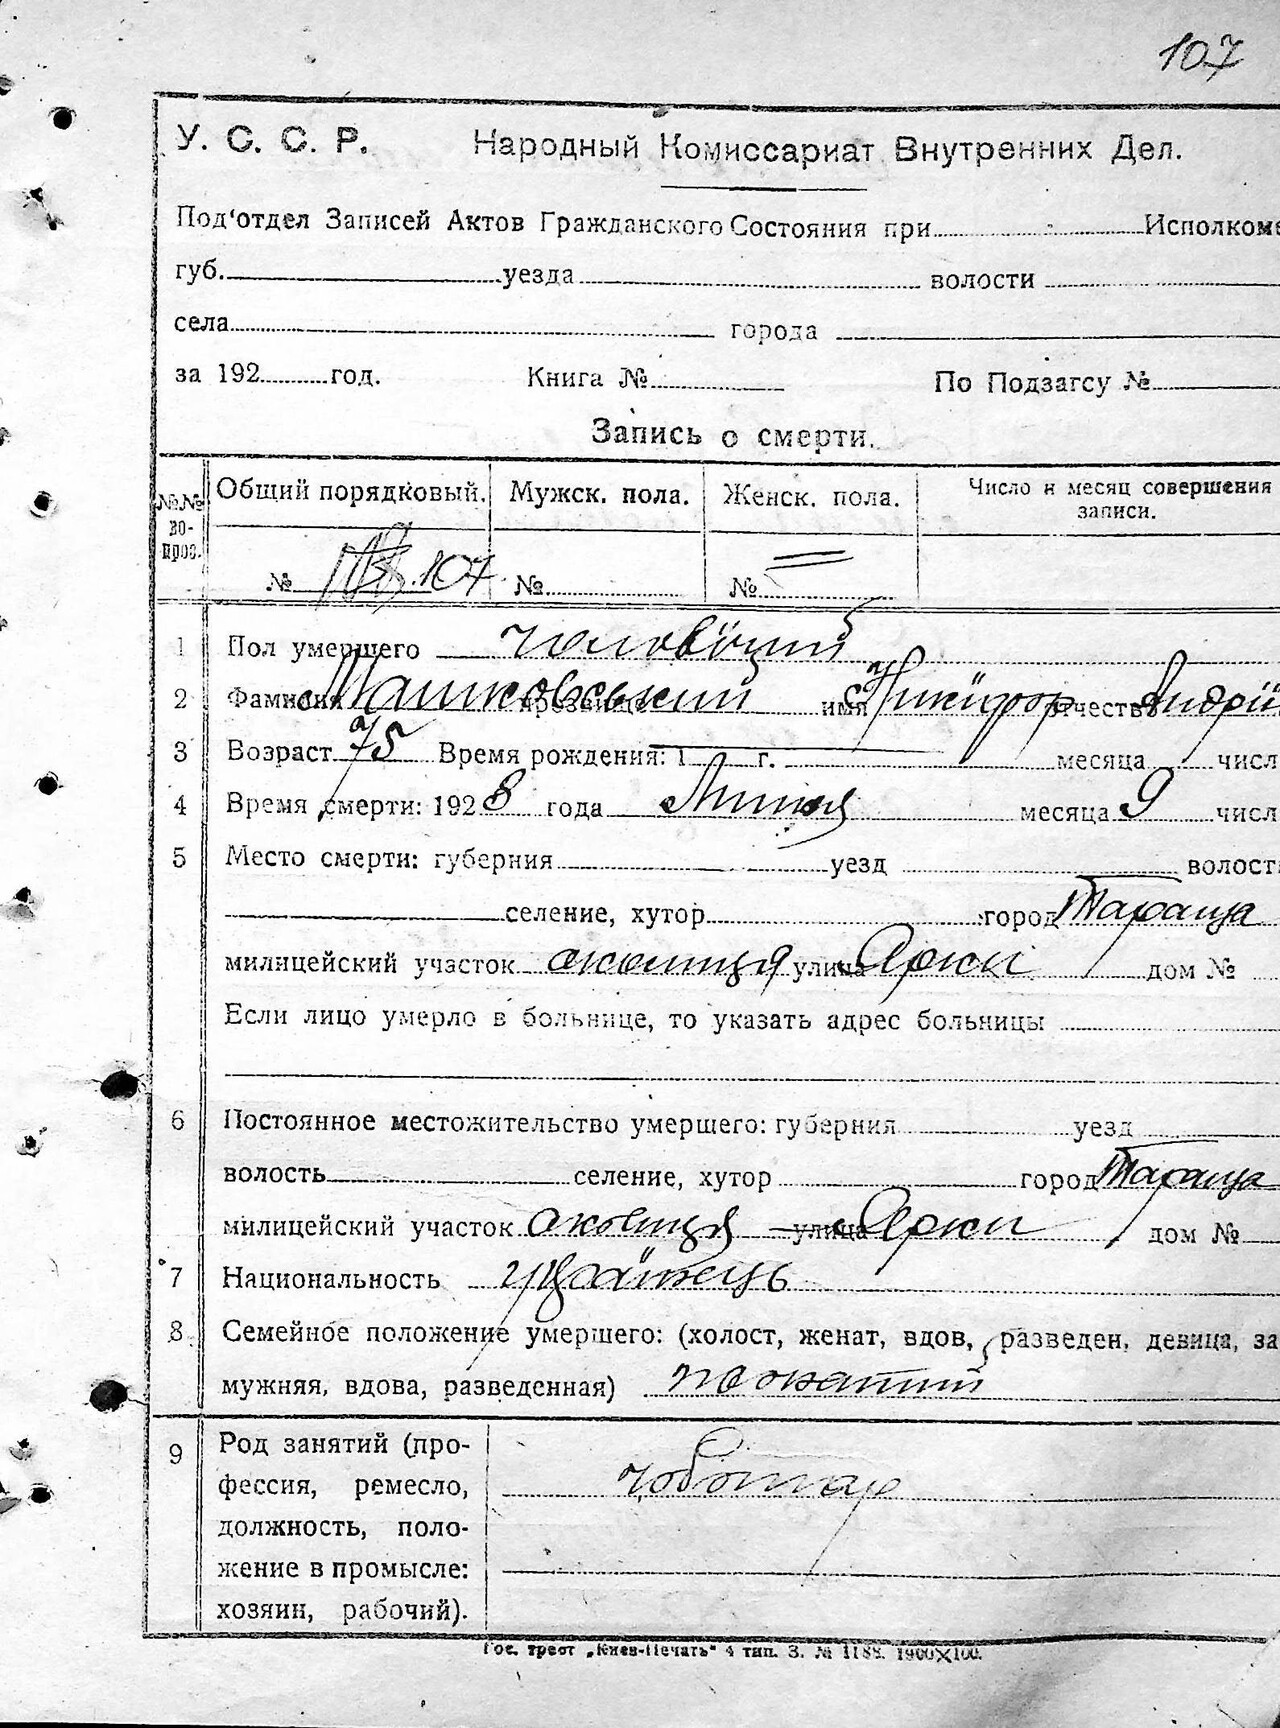 107
У. С. С. Р. Народный Комиссариат Внутренних Дел.
Под'отдел Записей Актов Гражданского Состояния при Исполкоме
губ. уезда волости
села города
за 192 год. Книга № По Подзагсу №
Запись о смерти.
№№ во-прос. Общий порядковый. Мужск. пола. Женск. пола. Число и месяц совершения записи.
№ 107 № № =
1 Пол умершего чоловічий
2 Фамилия Машковський прозвище имя Никифор отчество Андрі
3 Возраст 75 Время рождения: 1 г. месяца числ
4 Время смерти: 1928 года Липця месяца 9 числ
5 Место смерти: губерния уезд волост
селение, хутор город Тараща
милицейский участок околиця улица Ярки дом №
Если лицо умерло в больнице, то указать адрес больницы
6 Постоянное местожительство умершего: губерния уезд
волость селение, хутор город Тараща
милицейский участок околиця улица Ярки дом №
7 Национальность українець
8 Семейное положение умершего: (холост, женат, вдов, разведен, девица, за
мужняя, вдова, разведенная) жонатий
9 Род занятий (про-
фессия, ремесло, чоботар
должность, поло-
жение в промысле:
хозяин, рабочий).
Гос. трест „Киев-Печать" 4 тип. З. № 1188. 1900×100.